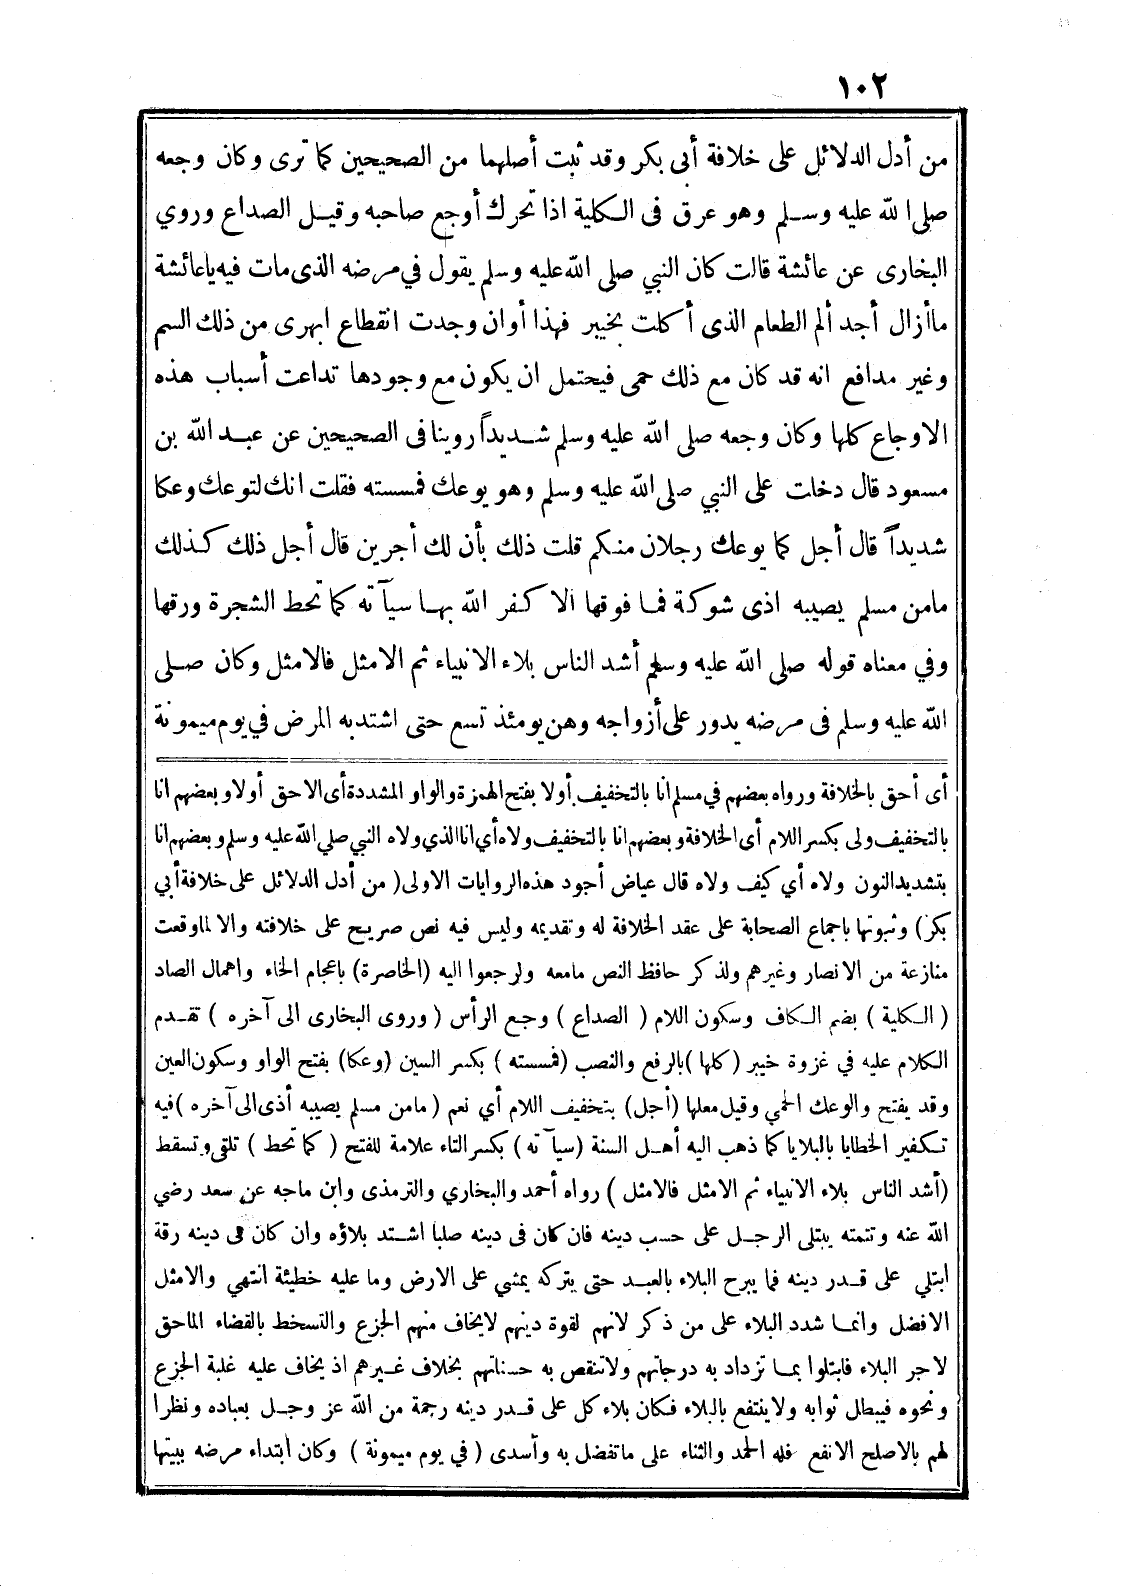 ١٠٢
من أدل الدلائل على خلافة أبى بكر وقد ثبت أصلهما من الصحيحين كما ترى وكان وجعه
صلى الله عليه وسلم وهو عرق فى الكلية اذا تحرك أوجع صاحبه وقيل الصداع وروي
البخارى عن عائشة قالت كان النبي صلى الله عليه وسلم يقول في مرضه الذى مات فيه ياعائشة
ماأزال أجد ألم الطعام الذى أكلت بخيبر فهذا أوان وجدت انقطاع ابهرى من ذلك السم
وغير مدافع انه قد كان مع ذلك حمى فيحتمل ان يكون مع وجودها تداعت أسباب هذه
الاوجاع كلها وكان وجعه صلى الله عليه وسلم شديداً روينا فى الصحيحين عن عبد الله بن
مسعود قال دخلت على النبي صلى الله عليه وسلم وهو يوعك فمسسته فقلت انك لتوعك وعكا
شديداً قال أجل كما يوعك رجلان منكم قلت ذلك بأن لك أجرين قال أجل ذلك كذلك
مامن مسلم يصيبه اذى شوكة فما فوقها الا كفر الله بها سيآته كما تحط الشجرة ورقها
وفي معناه قوله صلى الله عليه وسلم أشد الناس بلاء الانبياء ثم الامثل فالامثل وكان صلى
الله عليه وسلم فى مرضه يدور على أزواجه وهن يومئذ تسع حتى اشتد به المرض في يوم ميمونة
أى أحق بالخلافة ورواه بعضهم في مسلم أنا بالتخفيف أولا بفتح الهمزة والواو المشددة أى الاحق أولا وبعضهم انا
بالتخفيف ولى بكسر اللام أى الخلافة وبعضهم انا بالتخفيف ولاه أي انا الذي ولاه النبي صلى الله عليه وسلم وبعضهم انا
بتشديد النون ولاه أي كيف ولاه قال عياض أجود هذه الروايات الاولى (من أدل الدلائل على خلافة أبي
بكر) وثبوتها باجماع الصحابة على عقد الخلافة له وتقديمه وليس فيه نص صريح على خلافته والا لما وقعت
منازعة من الانصار وغيرهم ولذكر حافظ النص مامعه ولرجعوا اليه (الخاصرة) باعجام الخاء واهمال الصاد
(الكلية) بضم الكاف وسكون اللام (الصداع) وجع الرأس (وروى البخارى الى آخره) تقدم
الكلام عليه في غزوة خيبر (كلها) بالرفع والنصب (فمسسته) بكسر السين (وعكا) بفتح الواو وسكون العين
وقد يفتح والوعك الحمي وقيل مغلها (أجل) بتخفيف اللام أي نعم (مامن مسلم يصيبه أذى الى آخره) فيه
تكفير الخطايا بالبلايا كما ذهب اليه أهل السنة (سيآته) بكسر التاء علامة للفتح (كما تحط) تلقى وتسقط
(أشد الناس بلاء الانبياء ثم الامثل فالامثل) رواه أحمد والبخاري والترمذى وابن ماجه عن سعد رضي
الله عنه وتتمته يبتلى الرجل على حسب دينه فان كان فى دينه صلبا اشتد بلاؤه وان كان فى دينه رقة
ابتلي على قدر دينه فما يبرح البلاء بالعبد حتى يتركه يمشي على الارض وما عليه خطيئة انتهي والامثل
الافضل وانما شدد البلاء على من ذكر لانهم لقوة دينهم لايخاف منهم الجزع والتسخط بالقضاء الماحق
لاجر البلاء فابتلوا بما تزداد به درجاتهم ولاتنقص به حسناتهم بخلاف غيرهم اذ يخاف عليه غلبة الجزع
ونحوه فيبطل ثوابه ولاينتفع بالبلاء فكان بلاء كل على قدر دينه رحمة من الله عز وجل بعباده ونظرا
لهم بالاصلح الانفع فله الحمد والثناء على ماتفضل به وأسدى (في يوم ميمونة) وكان ابتداء مرضه ببيتها